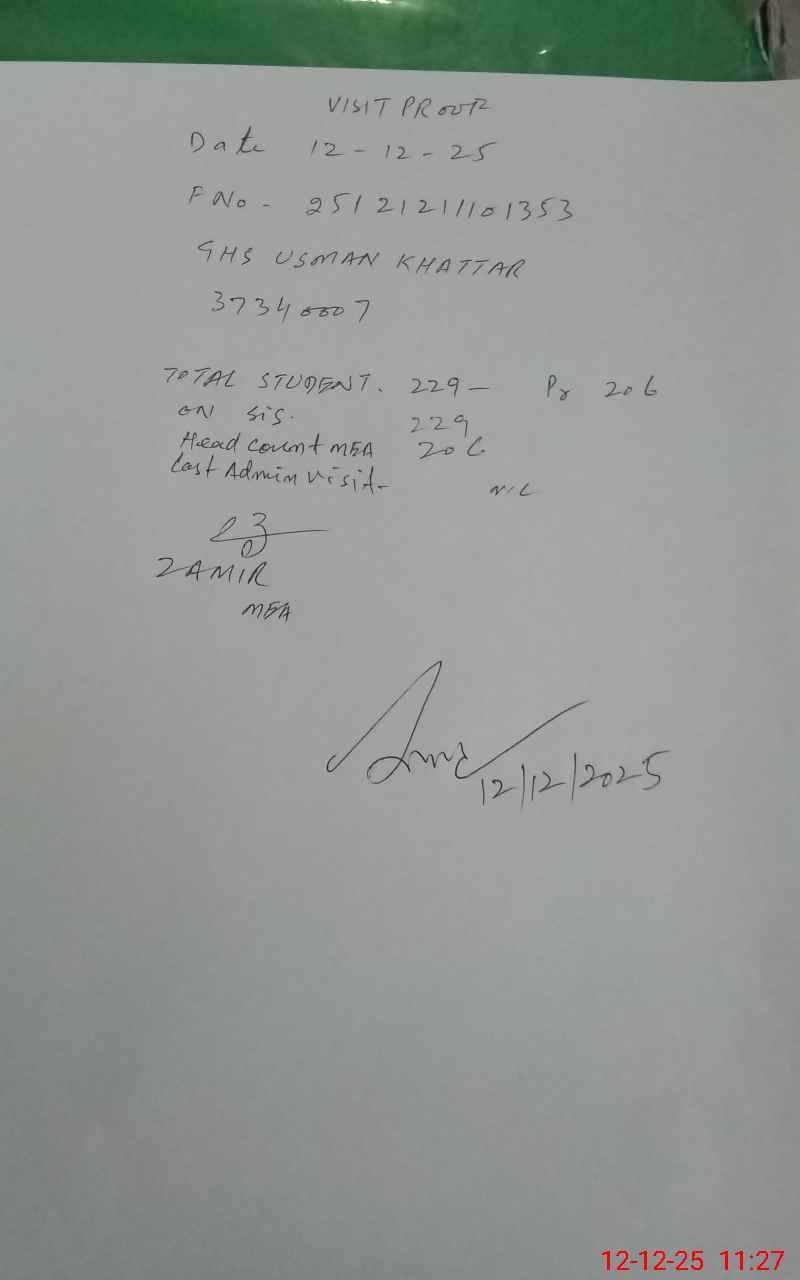 VISIT PROOF
Date 12-12-25
F No - 25121211101353
GHS USMAN KHATTAR
37340007
TOTAL STUDENT. 229 - Pr 206
ON SIS. 229
Head count MEA 206
Last Admin visit- NIL
ZAMIR
MEA
12/12/2025
12-12-25 11:27